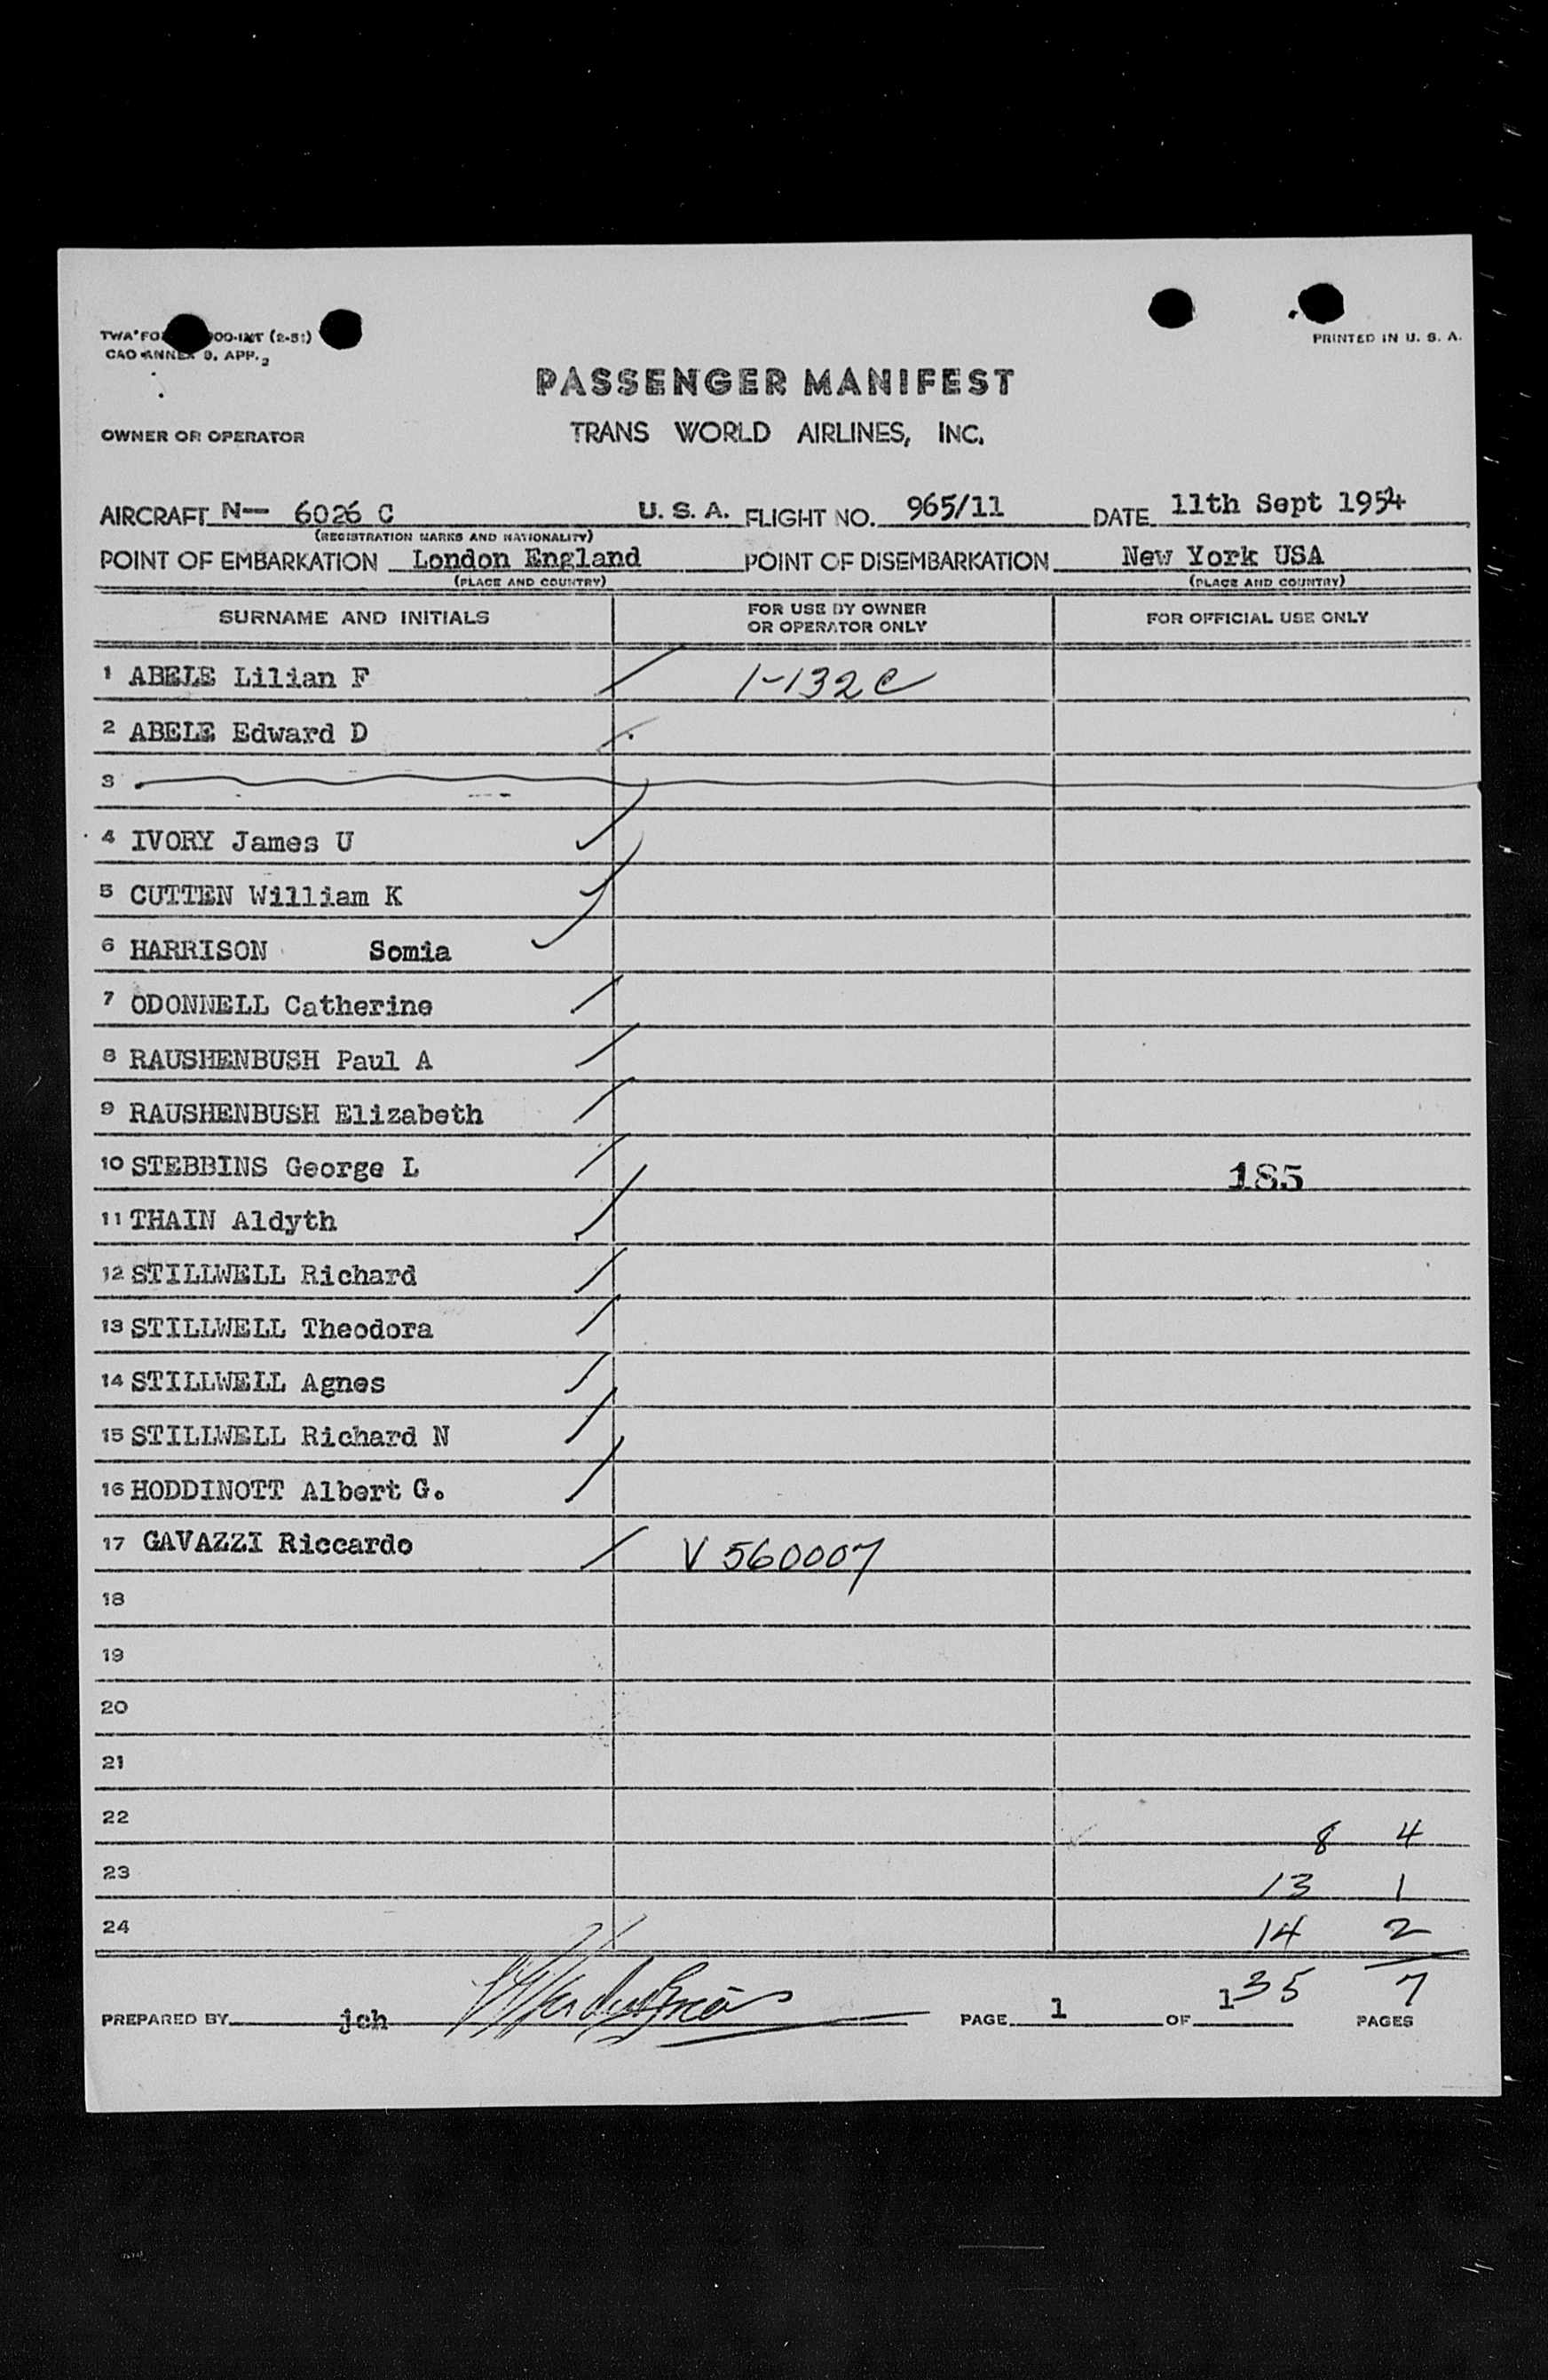 PRINTED IN U. S. A.
PASSENGER MANIFEST
OWNER OR OPERATOR TRANS WORLD AIRLINES, INC.
AIRCRAFT N— 6026 C U. S. A. FLIGHT NO. 965/11 DATE 11th Sept 1954
(REGISTRATION MARKS AND NATIONALITY)
POINT OF EMBARKATION London England POINT OF DISEMBARKATION New York USA
(PLACE AND COUNTRY) (PLACE AND COUNTRY)
SURNAME AND INITIALS FOR USE BY OWNER OR OPERATOR ONLY FOR OFFICIAL USE ONLY
1 ABELE Lilian F 1-132 C
2 ABELE Edward D
3
4 IVORY James U
5 CUTTEN William K
6 HARRISON Somia
7 ODONNELL Catherine
8 RAUSHENBUSH Paul A
9 RAUSHENBUSH Elizabeth
10 STEBBINS George L 185
11 THAIN Aldyth
12 STILLWELL Richard
13 STILLWELL Theodora
14 STILLWELL Agnes
15 STILLWELL Richard N
16 HODDINOTT Albert G.
17 GAVAZZI Riccardo V 560007
18
19
20
21
22 8 4
23 13 1
24 14 2
35 7
PREPARED BY jch PAGE 1 OF 1 PAGES